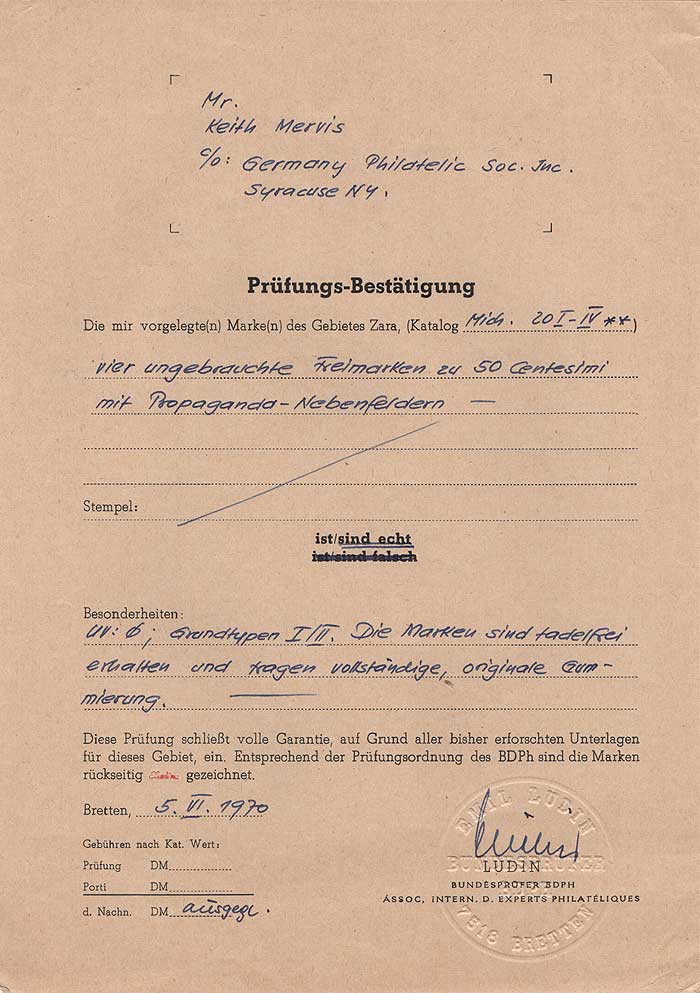 Mr.
Keith Mervis
c/o: Germany Philatelic Soc. Inc.
Syracuse NY.
Prüfungs-Bestätigung
Die mir vorgelegte(n) Marke(n) des Gebietes Zara, (Katalog Mich. 20 I-IV **)
vier ungebrauchte Freimarken zu 50 Centesimi
mit Propaganda-Nebenfeldern —
Stempel:
ist/sind echt
ist/sind falsch
Besonderheiten:
UV: Ø; Grundtypen I/II. Die Marken sind tadelfrei
erhalten und tragen vollständige, originale Gum-
mierung.
Diese Prüfung schließt volle Garantie, auf Grund aller bisher erforschten Unterlagen
für dieses Gebiet, ein. Entsprechend der Prüfungsordnung des BDPh sind die Marken
rückseitig gezeichnet.
Bretten, 5. VI. 1970
Gebühren nach Kat. Wert:
Prüfung DM
Porti DM
d. Nachn. DM ausgegl.
EMIL LUDIN
BUNDESPRÜFER
BDPH
7518 BRETTEN
Ludin
LUDIN
BUNDESPRÜFER BDPH
ASSOC, INTERN. D. EXPERTS PHILATÉLIQUES